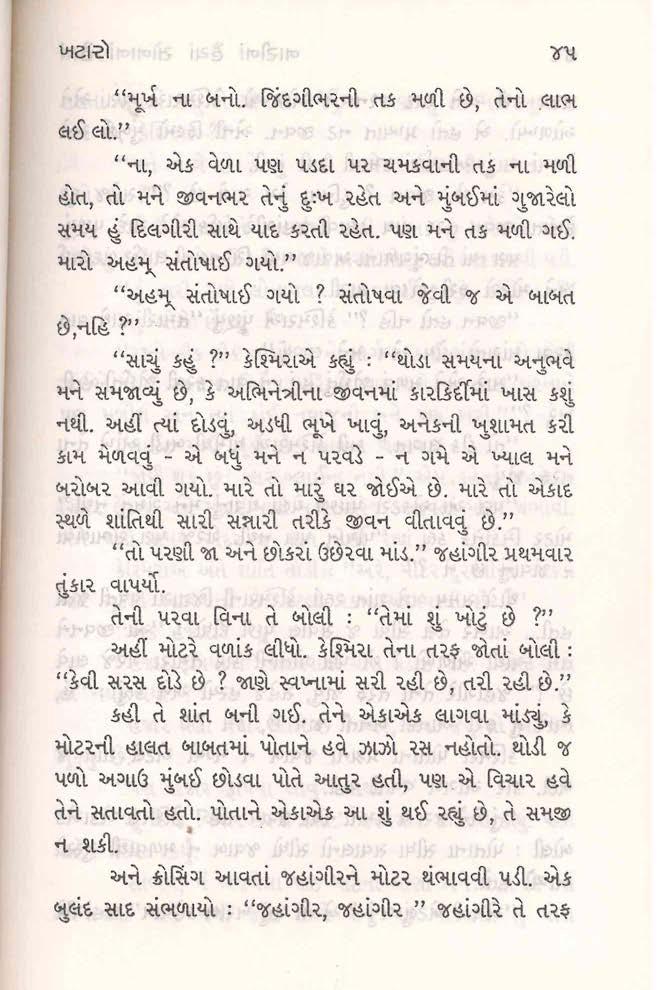 ખટારો ૪૫
“મૂર્ખ ના બનો. જિંદગીભરની તક મળી છે, તેનો લાભ
લઈ લો.”
“ના, એક વેળા પણ પડદા પર ચમકવાની તક ના મળી
હોત, તો મને જીવનભર તેનું દુઃખ રહેત અને મુંબઈમાં ગુજારેલો
સમય હું દિલગીરી સાથે યાદ કરતી રહેત. પણ મને તક મળી ગઈ.
મારો અહમ્ સંતોષાઈ ગયો.”
“અહમ્ સંતોષાઈ ગયો ? સંતોષવા જેવી જ એ બાબત
છે,નહિ ?”
“સાચું કહું ?” કેશ્મિરાએ કહ્યું : “થોડા સમયના અનુભવે
મને સમજાવ્યું છે, કે અભિનેત્રીના જીવનમાં કારકિર્દીમાં ખાસ કશું
નથી. અહીં ત્યાં દોડવું, અડધી ભૂખે ખાવું, અનેકની ખુશામત કરી
કામ મેળવવું - એ બધું મને ન પરવડે - ન ગમે એ ખ્યાલ મને
બરોબર આવી ગયો. મારે તો મારું ઘર જોઈએ છે. મારે તો એકાદ
સ્થળે શાંતિથી સારી સન્નારી તરીકે જીવન વીતાવવું છે.”
“તો પરણી જા અને છોકરાં ઉછેરવા માંડ.” જહાંગીર પ્રથમવાર
તુંકાર વાપર્યો.
તેની પરવા વિના તે બોલી : “તેમાં શું ખોટું છે ?”
અહીં મોટરે વળાંક લીધો. કેશ્મિરા તેના તરફ જોતાં બોલી :
“કેવી સરસ દોડે છે ? જાણે સ્વપ્નામાં સરી રહી છે, તરી રહી છે.”
કહી તે શાંત બની ગઈ. તેને એકાએક લાગવા માંડ્યું, કે
મોટરની હાલત બાબતમાં પોતાને હવે ઝાઝો રસ નહોતો. થોડી જ
પળો અગાઉ મુંબઈ છોડવા પોતે આતુર હતી, પણ એ વિચાર હવે
તેને સતાવતો હતો. પોતાને એકાએક આ શું થઈ રહ્યું છે, તે સમજી
ન શકી.
અને ક્રોસિંગ આવતાં જહાંગીરને મોટર થંભાવવી પડી. એક
બુલંદ સાદ સંભળાયો : “જહાંગીર, જહાંગીર ” જહાંગીરે તે તરફ